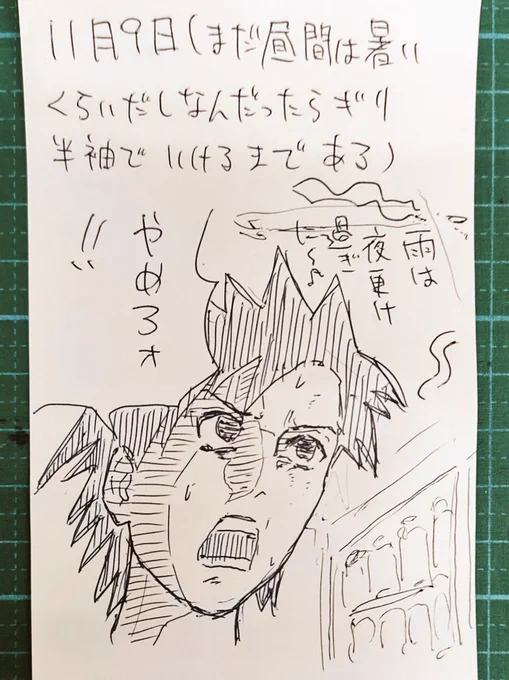 11月9日(まだ昼間は暑い
くらいだしなんだったらぎり
半袖でいけるまである)
雨は
夜更け
過ぎ
に〜♪
やめろォ
!!